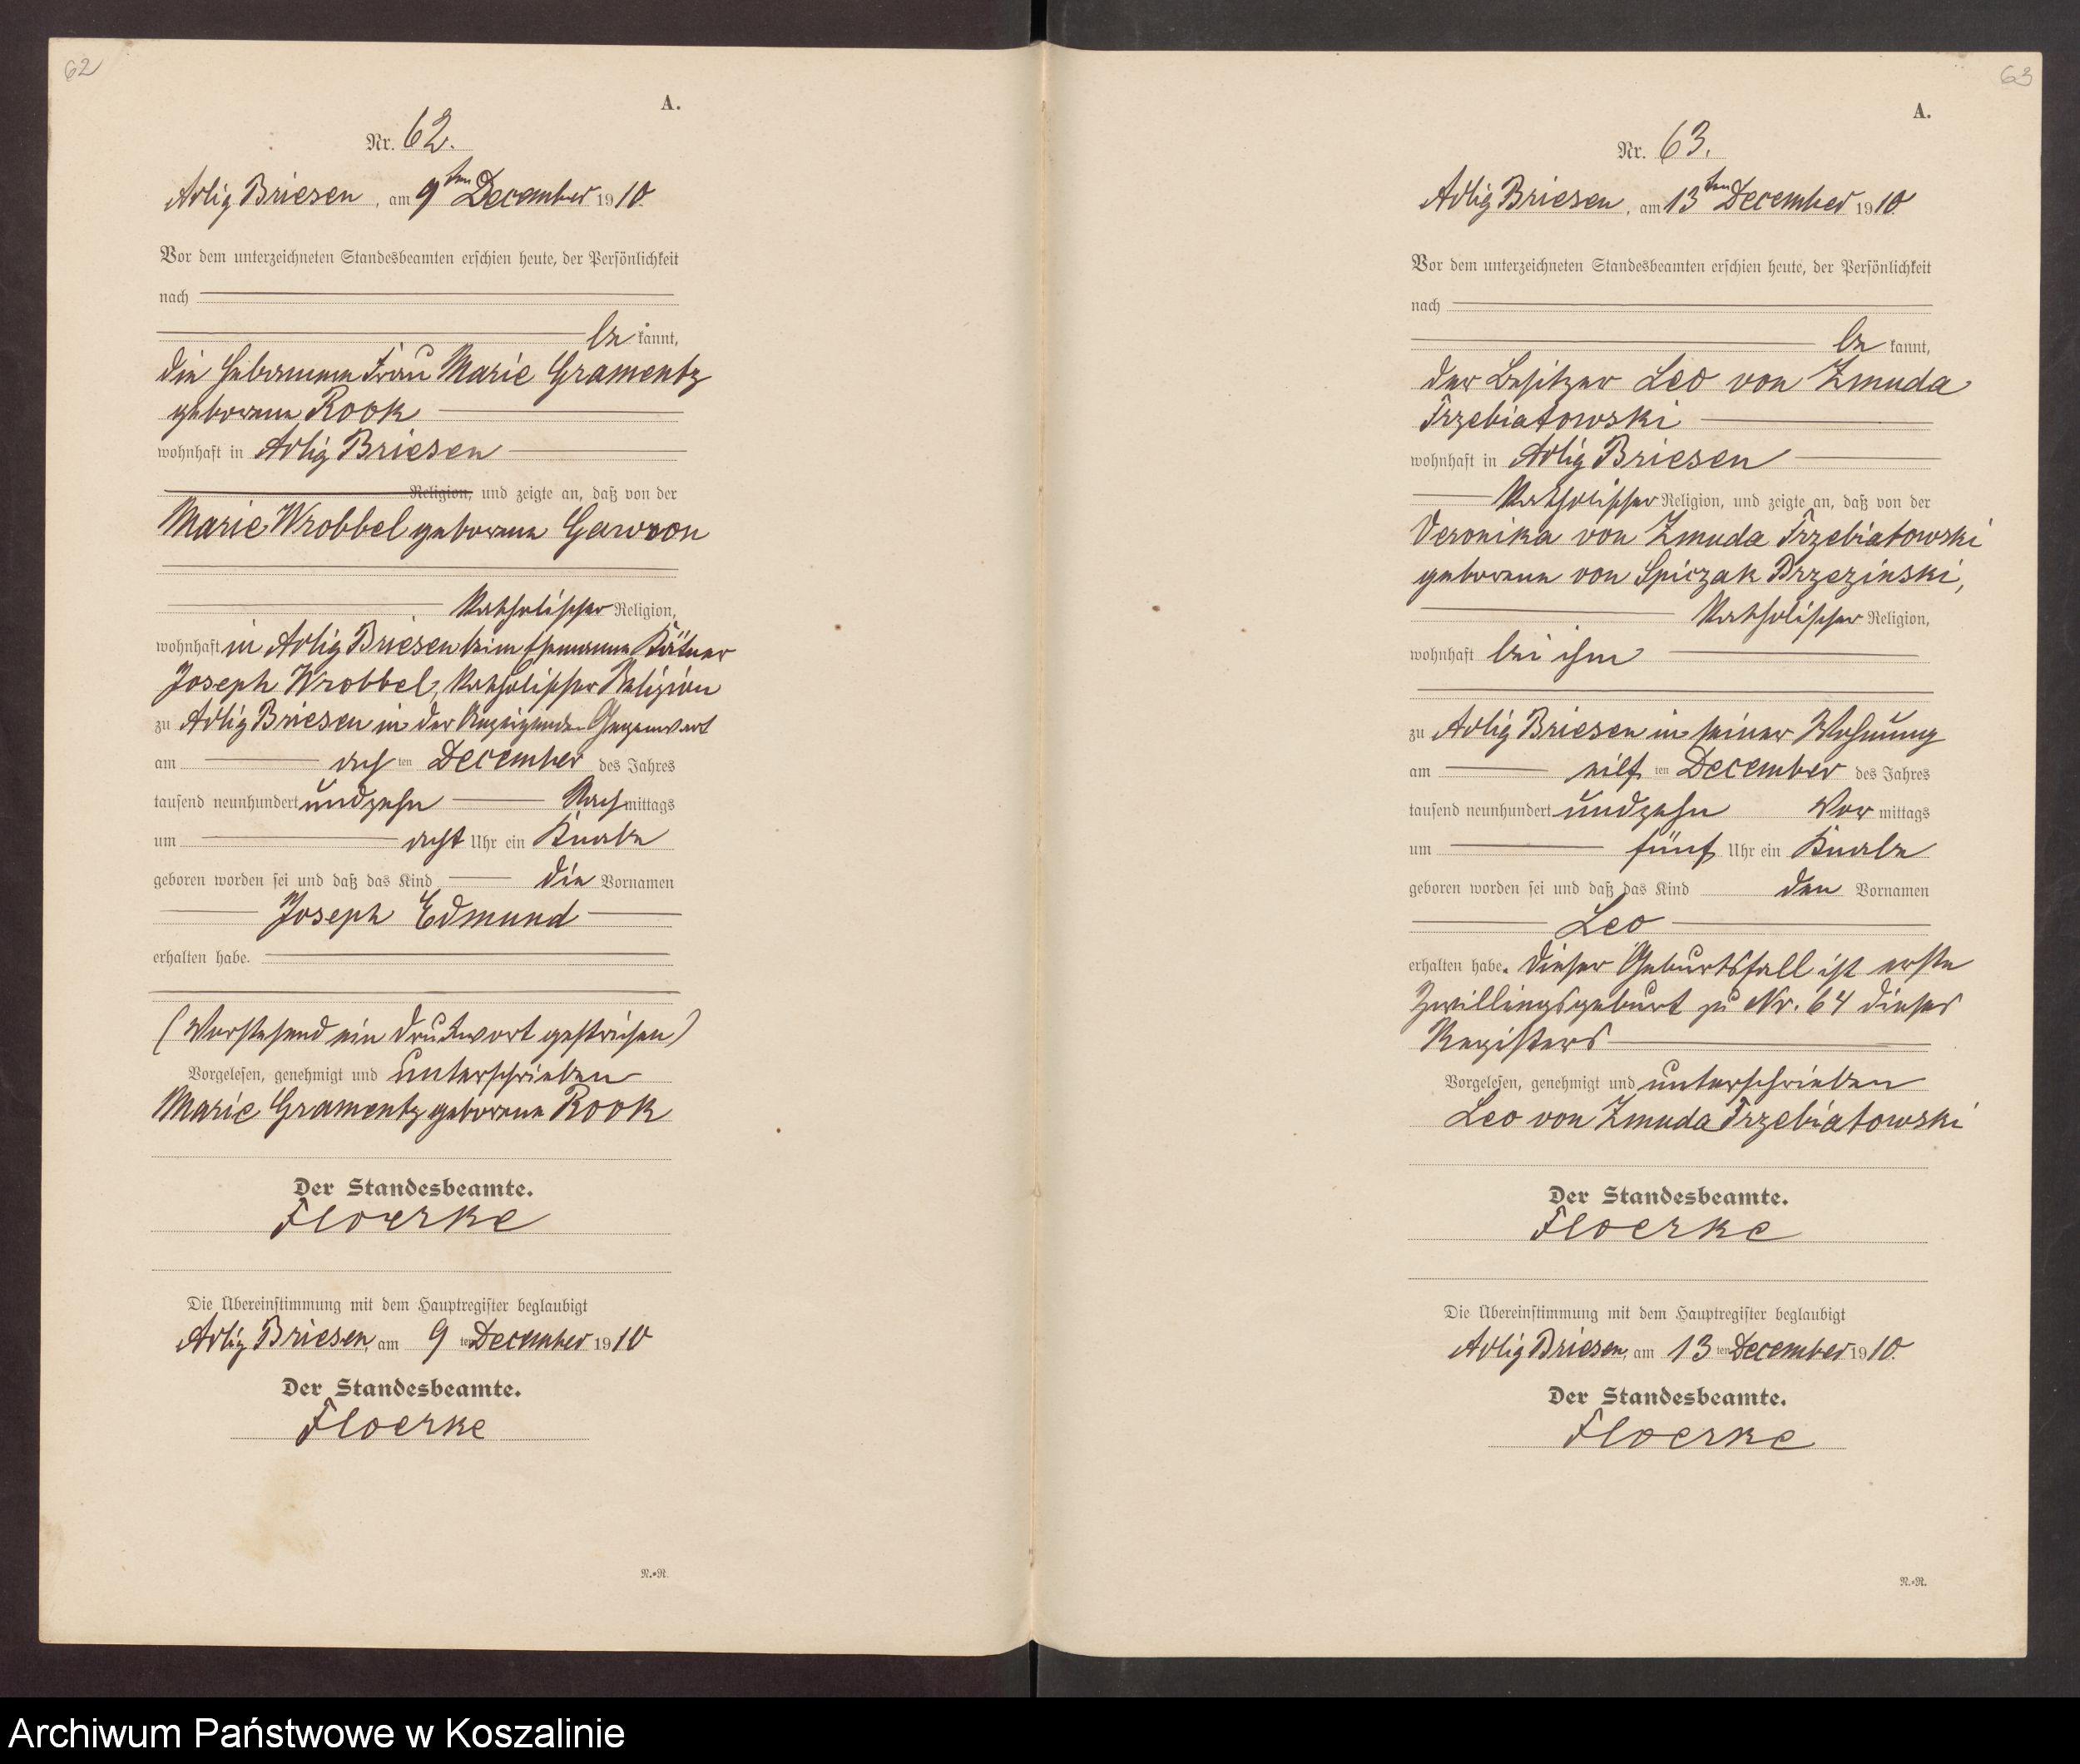 62
A.
Nr. 62.
Adlig Briesen, am 9ten December 1910.
Vor dem unterzeichneten Standesbeamten erschien heute, der Persönlichkeit
nach
be kannt,
die Hebamme Frau Marie Gramentz
geborene Rook
wohnhaft in Adlig Briesen
Religion, und zeigte an, daß von der
Marie Wrobbel geborene Gawron
katholischer Religion,
wohnhaft in Adlig Briesen beim Ehemanne Kätner
Joseph Wrobbel, katholischer Religion
zu Adlig Briesen in der Anzeigenden Gegenwart
am acht ten December des Jahres
tausend neunhundert undzehn Nachmittags
um acht Uhr ein Knabe
geboren worden sei und daß das Kind die Vornamen
Joseph Edmund
erhalten habe.
(Vorstehend ein Druckwort gestrichen)
Vorgelesen, genehmigt und unterschrieben
Marie Gramentz geborene Rook
Der Standesbeamte.
Floerke
Die Übereinstimmung mit dem Hauptregister beglaubigt
Adlig Briesen, am 9 ten December 1910
Der Standesbeamte.
Floerke
N.=R.
63
A.
Nr. 63.
Adlig Briesen, am 13ten December 1910.
Vor dem unterzeichneten Standesbeamten erschien heute, der Persönlichkeit
nach
be kannt,
der Besitzer Leo von Zmuda
Trzebiatowski
wohnhaft in Adlig Briesen
katholischer Religion, und zeigte an, daß von der
Veronika von Zmuda Trzebiatowski
geborene von Spiczak Brzezinski,
katholischer Religion,
wohnhaft bei ihm
zu Adlig Briesen in seiner Wohnung
am eilf ten December des Jahres
tausend neunhundert undzehn Vor mittags
um fünf Uhr ein Knabe
geboren worden sei und daß das Kind den Vornamen
Leo
erhalten habe. Dieser Geburtsfall ist erste
Zwillingsgeburt zu Nr. 64 dieses
Registers
Vorgelesen, genehmigt und unterschrieben
Leo von Zmuda Trzebiatowski
Der Standesbeamte.
Floerke
Die Übereinstimmung mit dem Hauptregister beglaubigt
Adlig Briesen, am 13 ten December 1910.
Der Standesbeamte.
Floerke
N.=R.
Archiwum Państwowe w Koszalinie